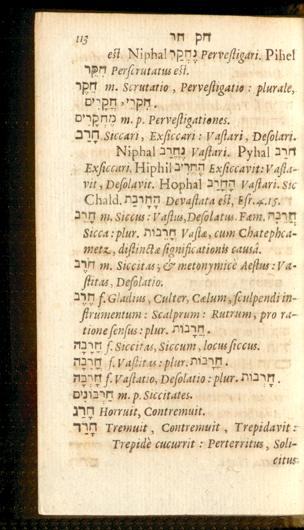 113 חק חר
est. Niphal נֶחְקַר Pervestigari. Pihel
חִקֵּר Perscrutatus est.
חֵקֶר m. Scrutatio, Pervestigatio : plurale,
חִקְרֵי, חֲקָרִים.
מֶחְקָרִים m. p. Pervestigationes.
חָרַב Siccari, Exsiccari : Vastari, Desolari.
Niphal נֶחֱרַב Vastari. Pyhal חֹרַב
Exsiccari. Hiphil הֶחֱרִיב Exsiccavit: Vasta-
vit, Desolavit. Hophal הָחֳרַב Vastari. Sic
Chald. הָחָרְבַת Devastata est, Esr. 4. 15.
חָרֵב m. Siccus : Vastus, Desolatus. Fæm. חֲרֵבָה
Sicca : plur. חֲרֵבוֹת Vastæ, cum Chatephca-
metz, distinctæ significationis causâ.
חֹרֶב m. Siccitas, & metonymicè Aestus : Va-
stitas, Desolatio.
חֶרֶב f. Gladius, Culter, Cælum, sculpendi in-
strumentum : Scalprum : Rutrum, pro ra-
tione sensus : plur. חֲרָבוֹת.
חָרָבָה f. Siccitas, Siccum, locus siccus.
חָרְבָּה f. Vastitas : plur. חֳרָבוֹת.
חָרְבָה f. Vastatio, Desolatio : plur. חֳרָבוֹת.
חַרְבוֹנִים m. p. Siccitates.
חָרַג Horruit, Contremuit.
חָרַד Tremuit, Contremuit, Trepidavit :
Trepidè cucurrit : Perterritus, Soli-
citus